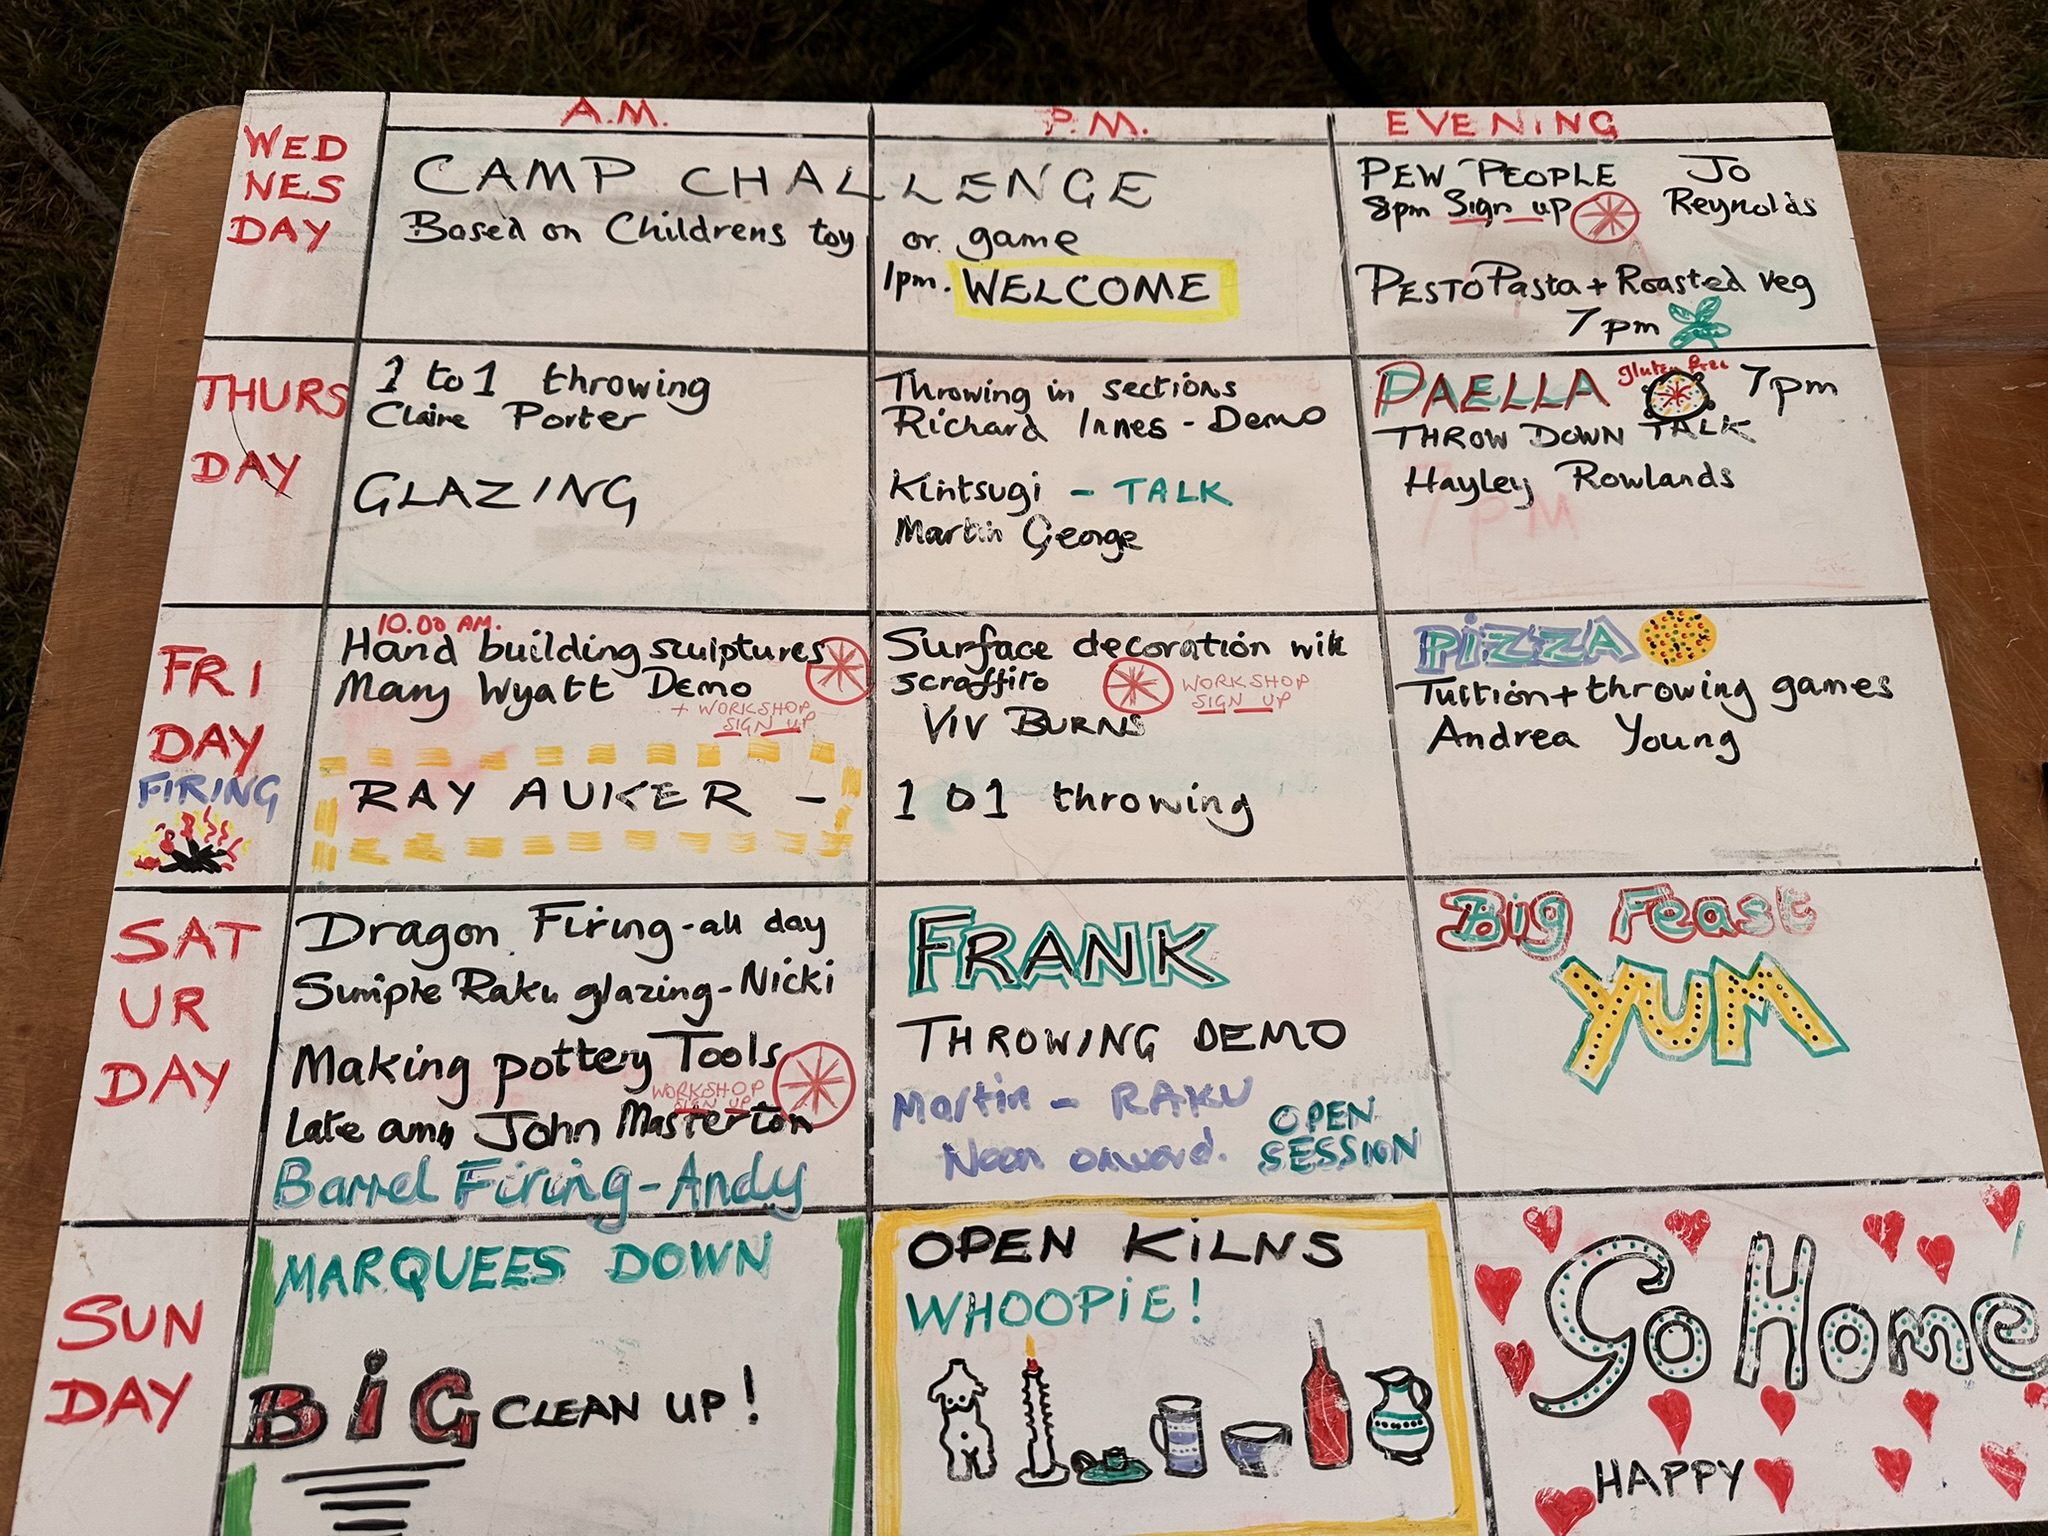 A.M.
P.M.
EVENING
WED
NES
DAY
CAMP CHALLENGE
Based on Childrens toy or game
1pm. WELCOME
PEW PEOPLE Jo
8pm Sign up Reynolds
PESTO Pasta + Roasted veg
7pm
THURS
DAY
1 to 1 throwing
Claire Porter
GLAZING
Throwing in sections
Richard Innes - Demo
Kintsugi - TALK
Martin George
PAELLA gluten free 7pm
THROW DOWN TALK
Hayley Rowlands
7PM
FRI
DAY
FIRING
10.00 AM.
Hand building sculptures
Mary Wyatt Demo
+ WORKSHOP
SIGN UP
RAY AUKER -
Surface decoration with
scraffito
WORKSHOP
SIGN UP
VIV BURNS
1 to 1 throwing
PIZZA
Tuition + throwing games
Andrea Young
SAT
UR
DAY
Dragon Firing - all day
Simple Raku glazing - Nicki
Making pottery Tools
WORKSHOP
SIGN UP
Late am John Masterton
Barrel Firing - Andy
FRANK
THROWING DEMO
Martin - RAKU
Noon onward.
OPEN
SESSION
Big Feast
YUM
SUN
DAY
MARQUEES DOWN
BIG CLEAN UP!
OPEN KILNS
WHOOPIE!
Go Home
HAPPY